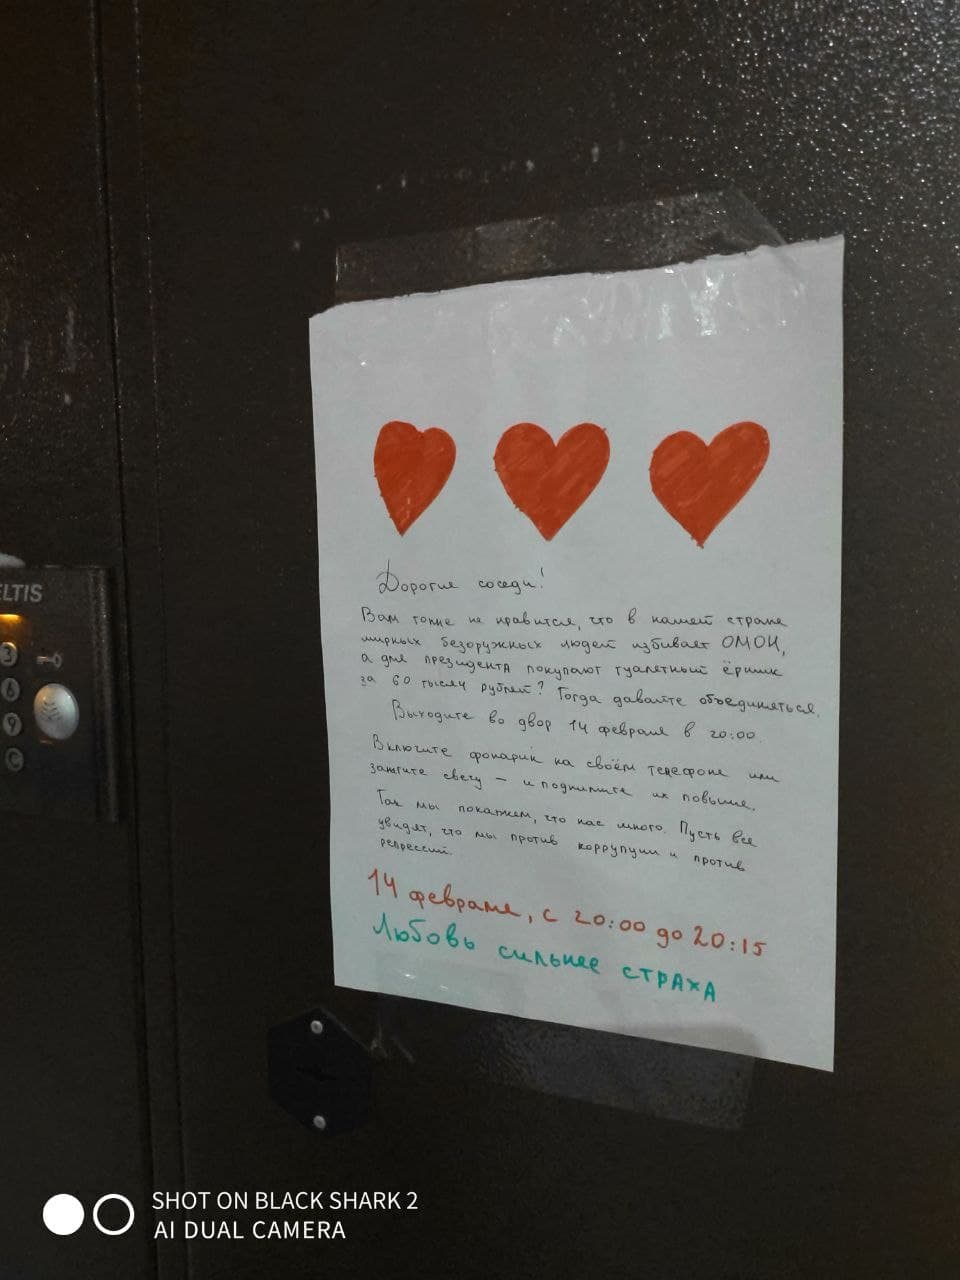 ELTIS
3
6
9
C
Дорогие соседи!
Вам тоже не нравится, что в нашей стране
мирных безоружных людей избивает ОМОН,
а для президента покупают туалетный ёршик
за 60 тысяч рублей? Тогда давайте объединяться.
Выходите во двор 14 февраля в 20:00.
Включите фонарик на своём телефоне или
зажгите свечу – и поднимите их повыше.
Так мы покажем, что нас много. Пусть все
увидят, что мы против коррупции и против
репрессий.
14 февраля, с 20:00 до 20:15
Любовь сильнее страха
SHOT ON BLACK SHARK 2
AI DUAL CAMERA